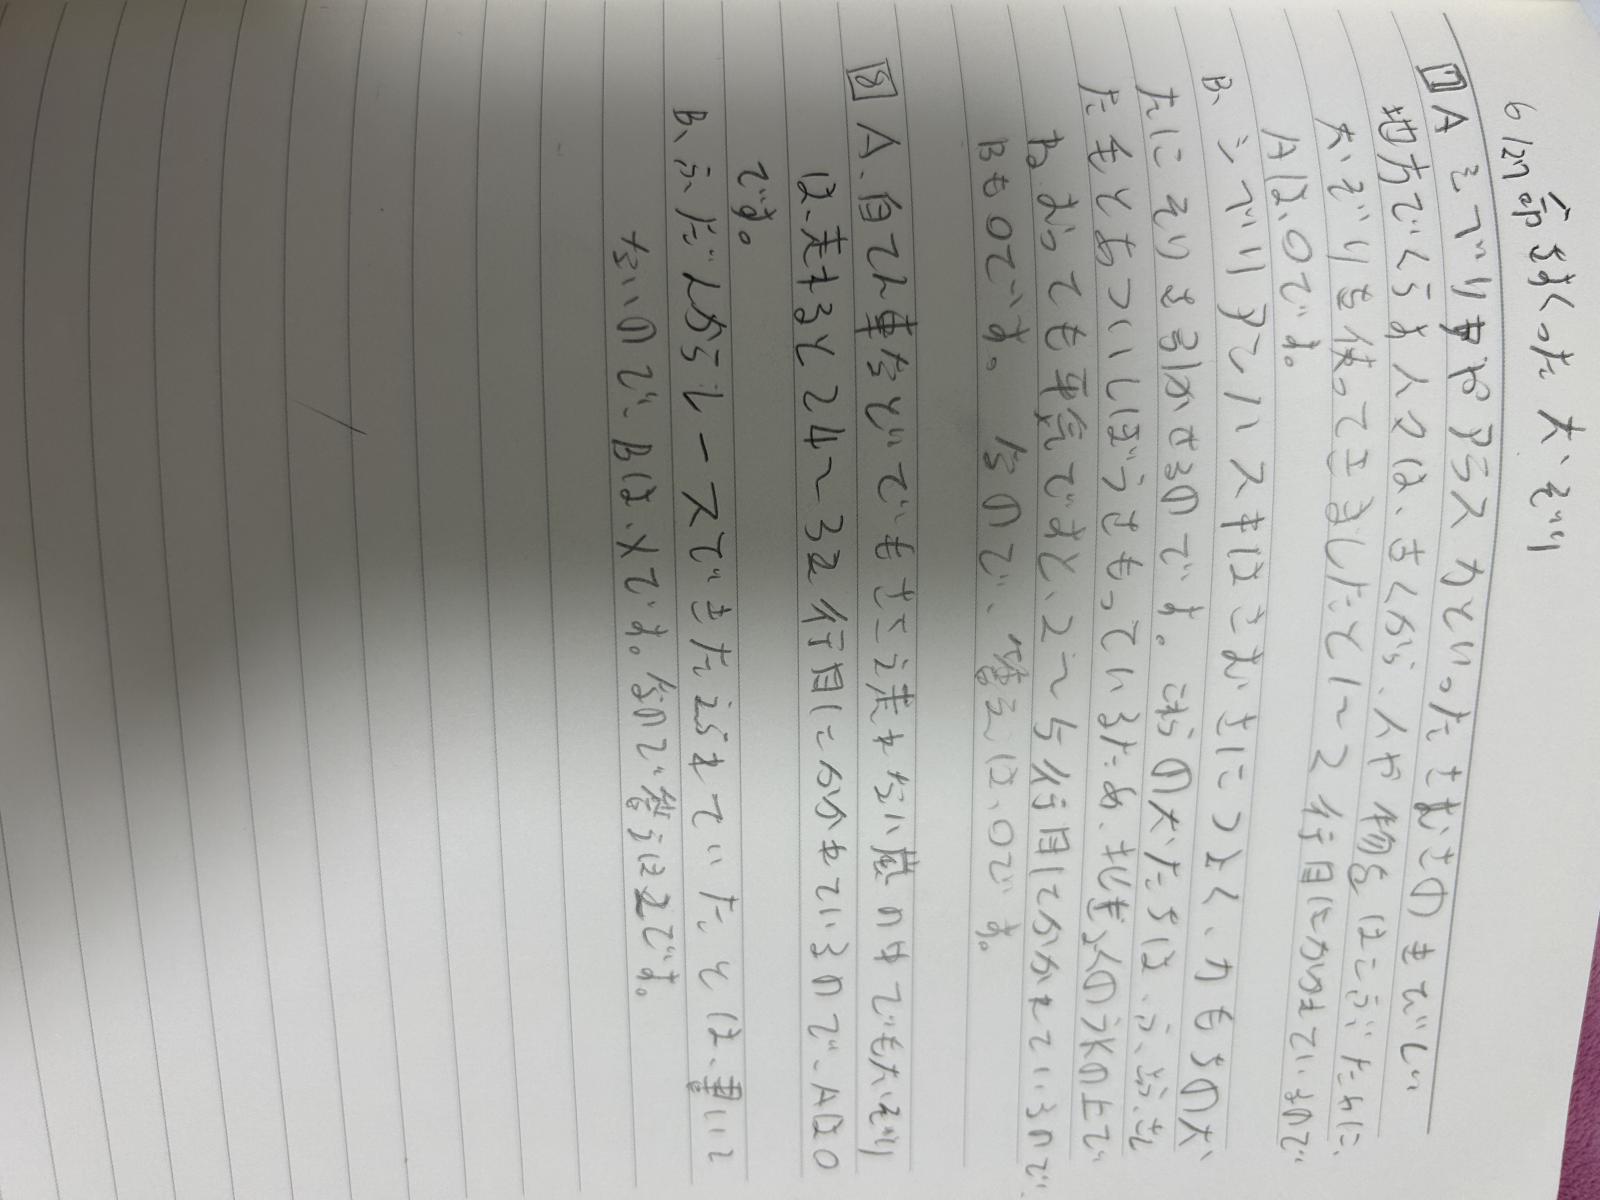 6/27 命をすくった犬ぞり
7 A シベリヤやアラスカといったさむさのきびしい
地方でくらす人々は、古くから、人や物をはこぶために
犬ぞりを使ってきましたと1〜2行目にかかれているので
Aは、〇です。
B、シベリアンハスキはさむさにつよく、力もちの犬
たにそりを引かせるのです。これらの犬たちは、ふぶき
たをとあついしぼうをもっているため、北きょくのうみの上で
ねむっても平気ですと、2〜5行目にかかれているので
Bも〇です。なので、答えは、〇です。
8 A、自てん車などでもさえ走れない嵐の中でも犬ぞり
は、走れると24〜32行目にかかれているので、Aは〇
です。
B、ふだんからレースできたえられていたとは、書いて
ないので、Bは、×です。なので答えは2です。